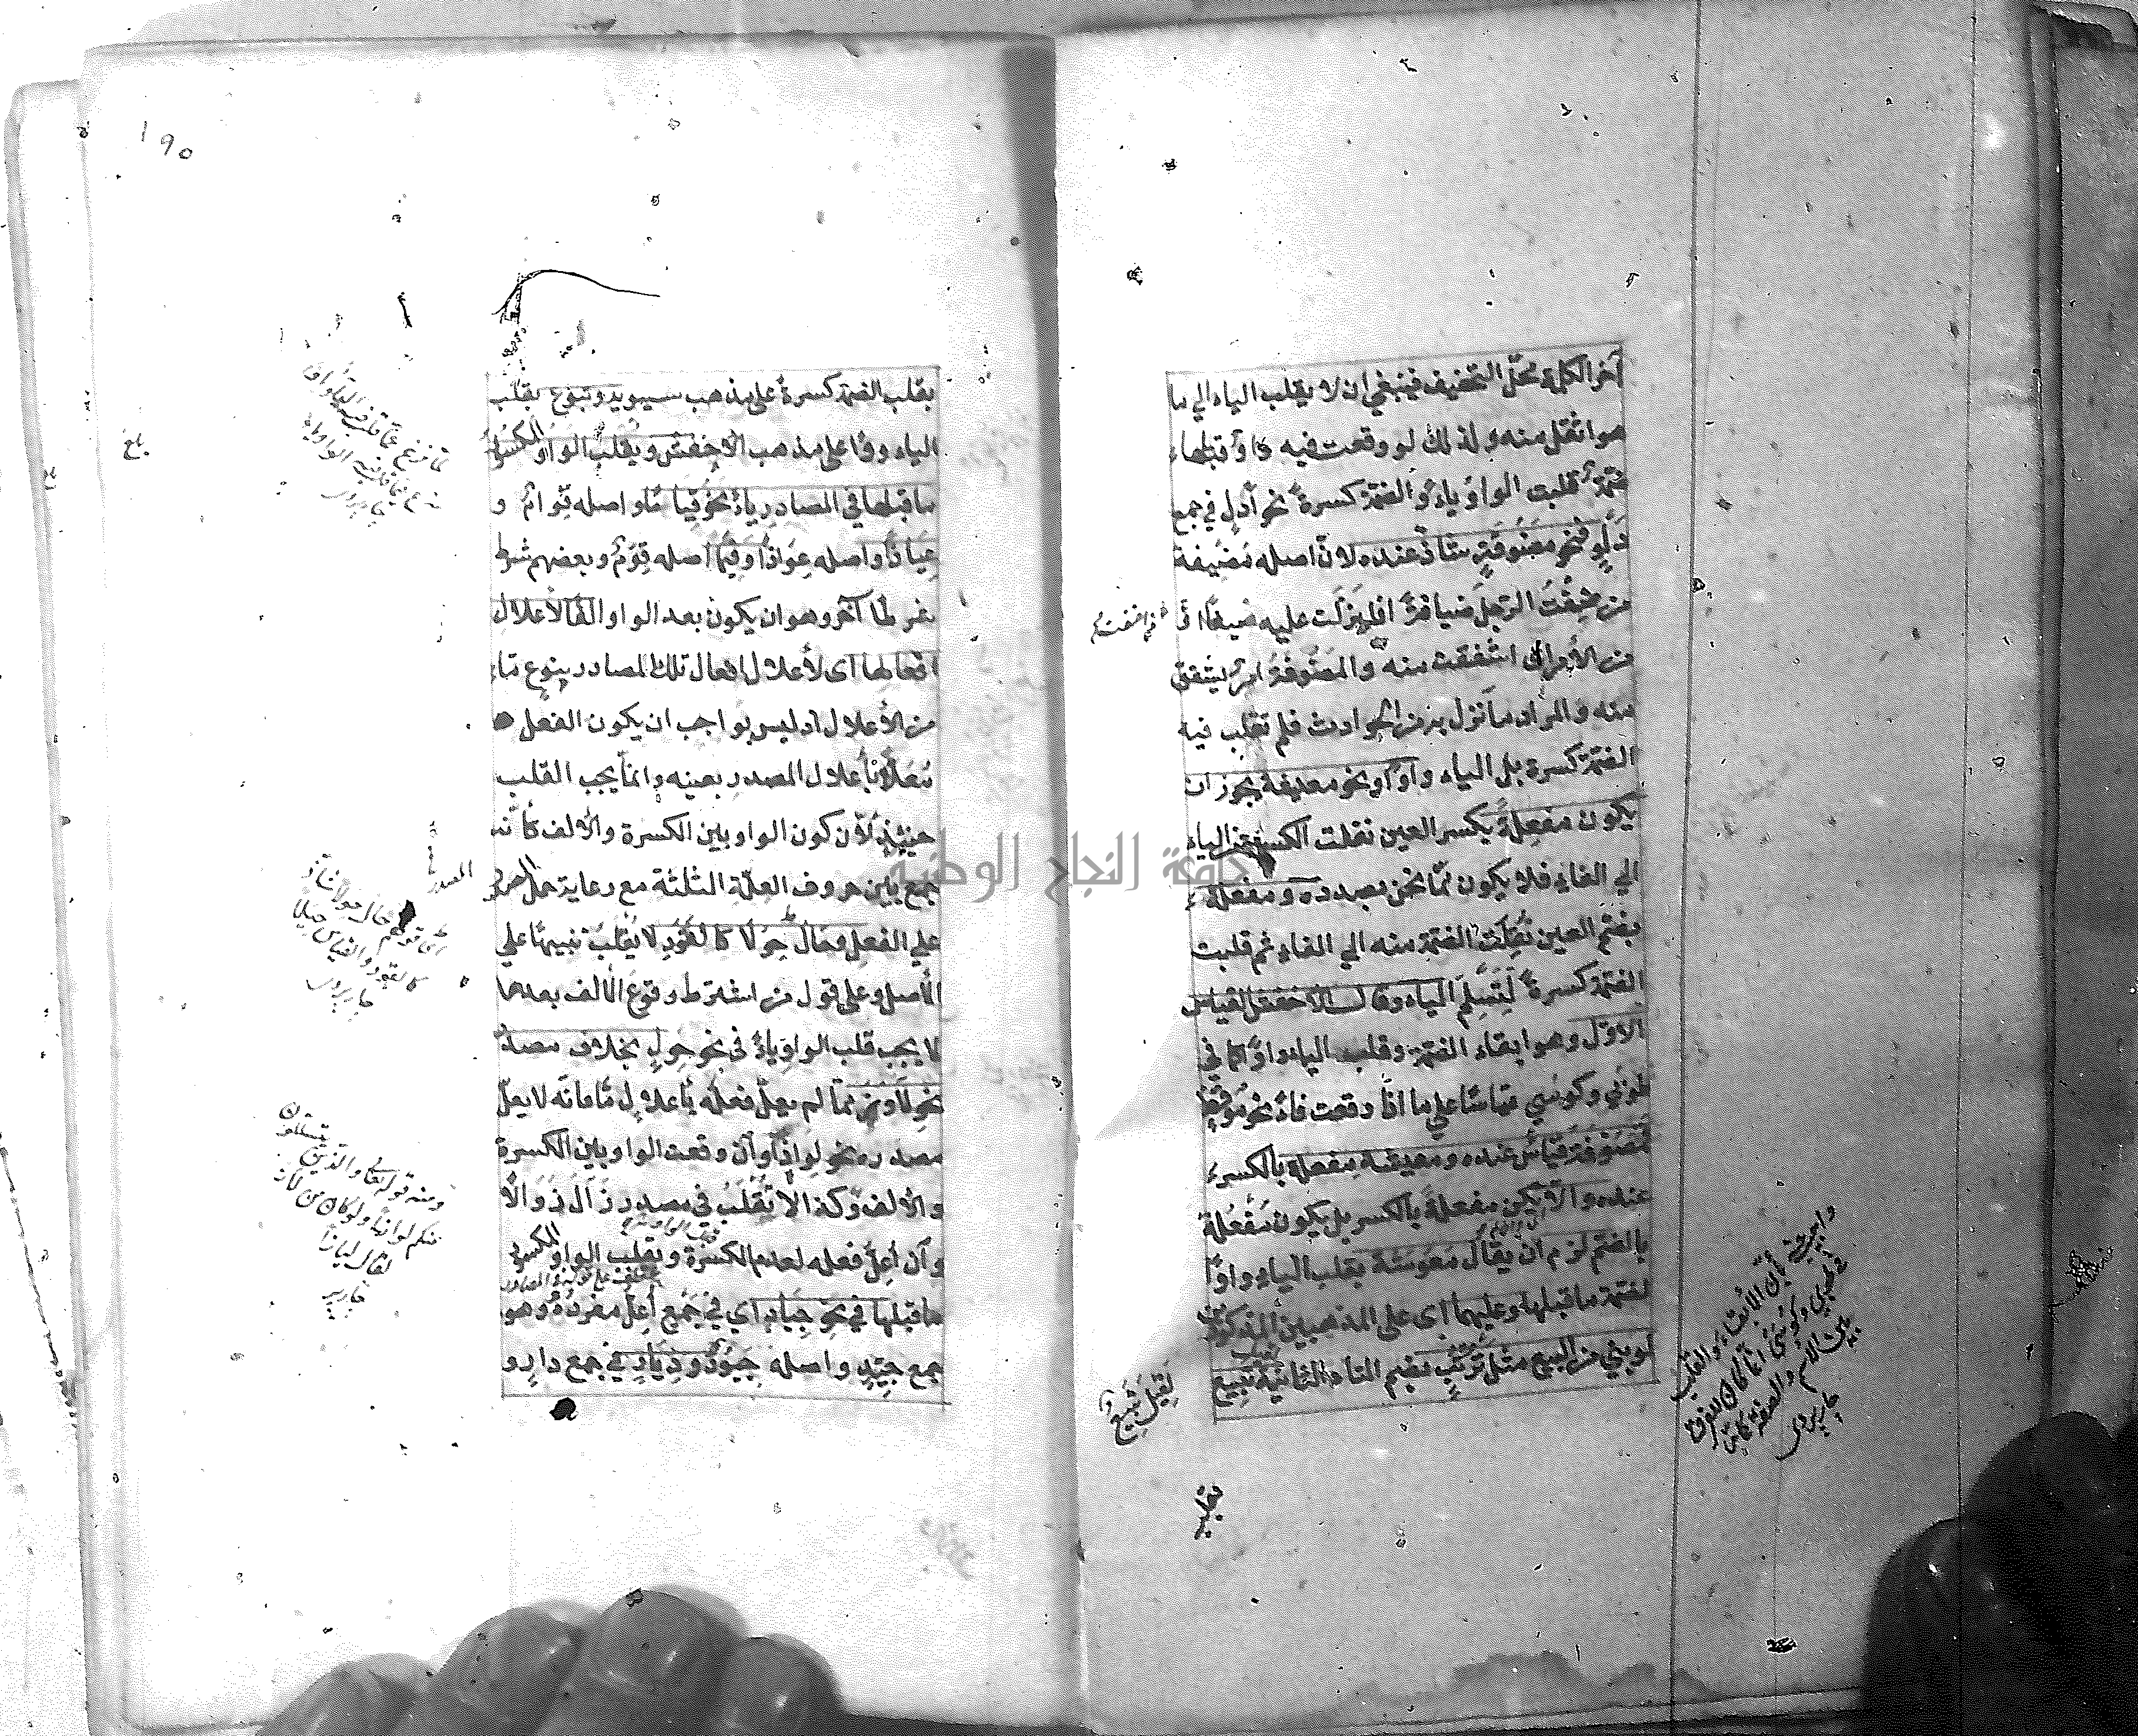 آخر الكلمة محلّ التخفيف فينبغي ان لا يقلب الياء الي ما
هو اثقل منه ولذلك لو وقعت فيه واو قبلها
ضمة قلبت الواو ياءً والضمة كسرةً نحو أدلٍ في جمع
دَلْوٍ فنحو مَضُوفَةٍ شاذّ عنده لانّ اصله مَضْيُفة
من ضِفْتُ الرجلَ ضيافةً اذا نزلت عليه ضيفًا او
من الأمر اى اشفقت منه والمضوفة امر يُشْفق
منه والمراد ما نزل به من الحوادث فلم تقلب فيه
الضمة كسرة بل الياء واوًا ونحو معيشة يجوز ان
يكون مفعِلة بكسر العين نقلت الكسرة من الياء
الي الفاء فلا يكون ممّا نحن بصدده ومفعلة
بضمّ العين نُقِلت الضمة منه الي الفاء ثم قلبت
الضمة كسرةً لِتَسْلَم الياء وقال الاخفش القياس
الاوّل وهو ابقاء الضمة وقلب الياء واوًا كما في
طوبي وكوسي قياسًا علي ما اذا وقعت فاءً نحو مُوقِظ
فمضوفة قياس عنده ومعيشة مفعلة بالكسر
عنده والّا يكن مفعلة بالكسر بل يكون مَفْعُلة
بالضم لزم ان يقال مَعُوشَة بقلب الياء واوًا
لضمة ما قبلها وعليهما اى على المذهبين المذكورين
لو بني من البيع مثل تُرْتُبٍ بضم التاء الثانية تبيع
لقيل تُبِيعٌ
١٩٥
بقلب الضمة كسرة على مذهب سيبويه وتبوع بقلب
الياء واوًا على مذهب الاخفش ويقلب الواو المكسور
ما قبلها في المصادر ياءً نحو قِيامًا واصله قِوامٌ و
عِياذًا واصله عِواذًا وقِيَمًا اصله قِوَمٌ وبعضهم شرط
شرطًا آخر وهو ان يكون بعد الواو الف لأعلال
افعالها اى لأعلال افعال تلك المصادر بنوعٍ ما
من الأعلال اذ ليس بواجب ان يكون الفعل
مُعَلًّا بأعلال المصدر بعينه وانما يجب القلب
حينئذٍ لأن كون الواو بين الكسرة والالف كأنّه
جمع بين حروف العلّة الثلثة مع رعاية حمل المصدر
علي الفعل وحال حِوَلًا كالقَوَد لا يُقلبُ تنبيهًا على
الأصل وعلى قول من اشترط وقوع الالف بعدها
لا يجب قلب الواو ياءً في نحو حِوَلٍ بخلاف مصدر
نحو لاوذ ممّا لم يعلّ فعله بأعلالٍ ما فانّه لا يعلّ
مصدره نحو لِواذًا وأن وقعت الواو بين الكسرة
والالف وكذا لا تُقْلَبُ في مصدر زَالَ زَوَالًا
وأن أعِلّ فعله لعدم الكسرة ويقلب الواو المكسور
ما قبلها في نحو جِيَادٍ اي في جَمْعٍ أعِلّ مفردُه وهو
جمع جيّدٍ واصله جَيْوِدٌ ودِيَارٍ في جمع دارٍ و
المصدر
امّا قولهم حال حولًا شاذ
كالقود والقياس حيلًا
جاربردى
ومنه قوله تعالى والذين يتسللون
منكم لواذًا ولو كان من لاذ
لقال لياذًا
جاربردى